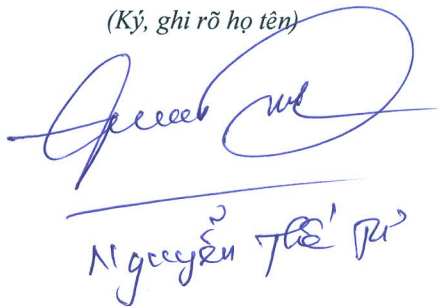 (Ký, ghi rõ họ tên)
Nguyễn Thế